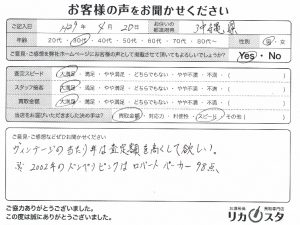 お客様の声をお聞かせください
ご記入日 H29年 4月 20日 お住いの都道府県 沖縄県
年齢 20代・30代・40代・50代・60代・70代・80代 性別 男・女
ご意見・ご感想を弊社ホームページにお客様の声として掲載させて頂いてもよろしいでしょうか? Yes・No
査定スピード 大満足・満足・やや満足・どちらでもない・やや不満・不満・
スタッフ接客 大満足・満足・やや満足・どちらでもない・やや不満・不満・
買取金額 大満足・満足・やや満足・どちらでもない・やや不満・不満・
当店をお選びいただきました決め手は? 買取金額・対応力・利便性・スピード・その他( )
ご意見・ご感想などぜひお聞かせください
ヴィンテージの当たり年は査定額を高くして欲しい。
※2002年のドンペリピンクはロバートパーカー98点
ご協力ありがとうございました。
この度は誠にありがとうございました。
お酒販売 買取専門店
リカスタ